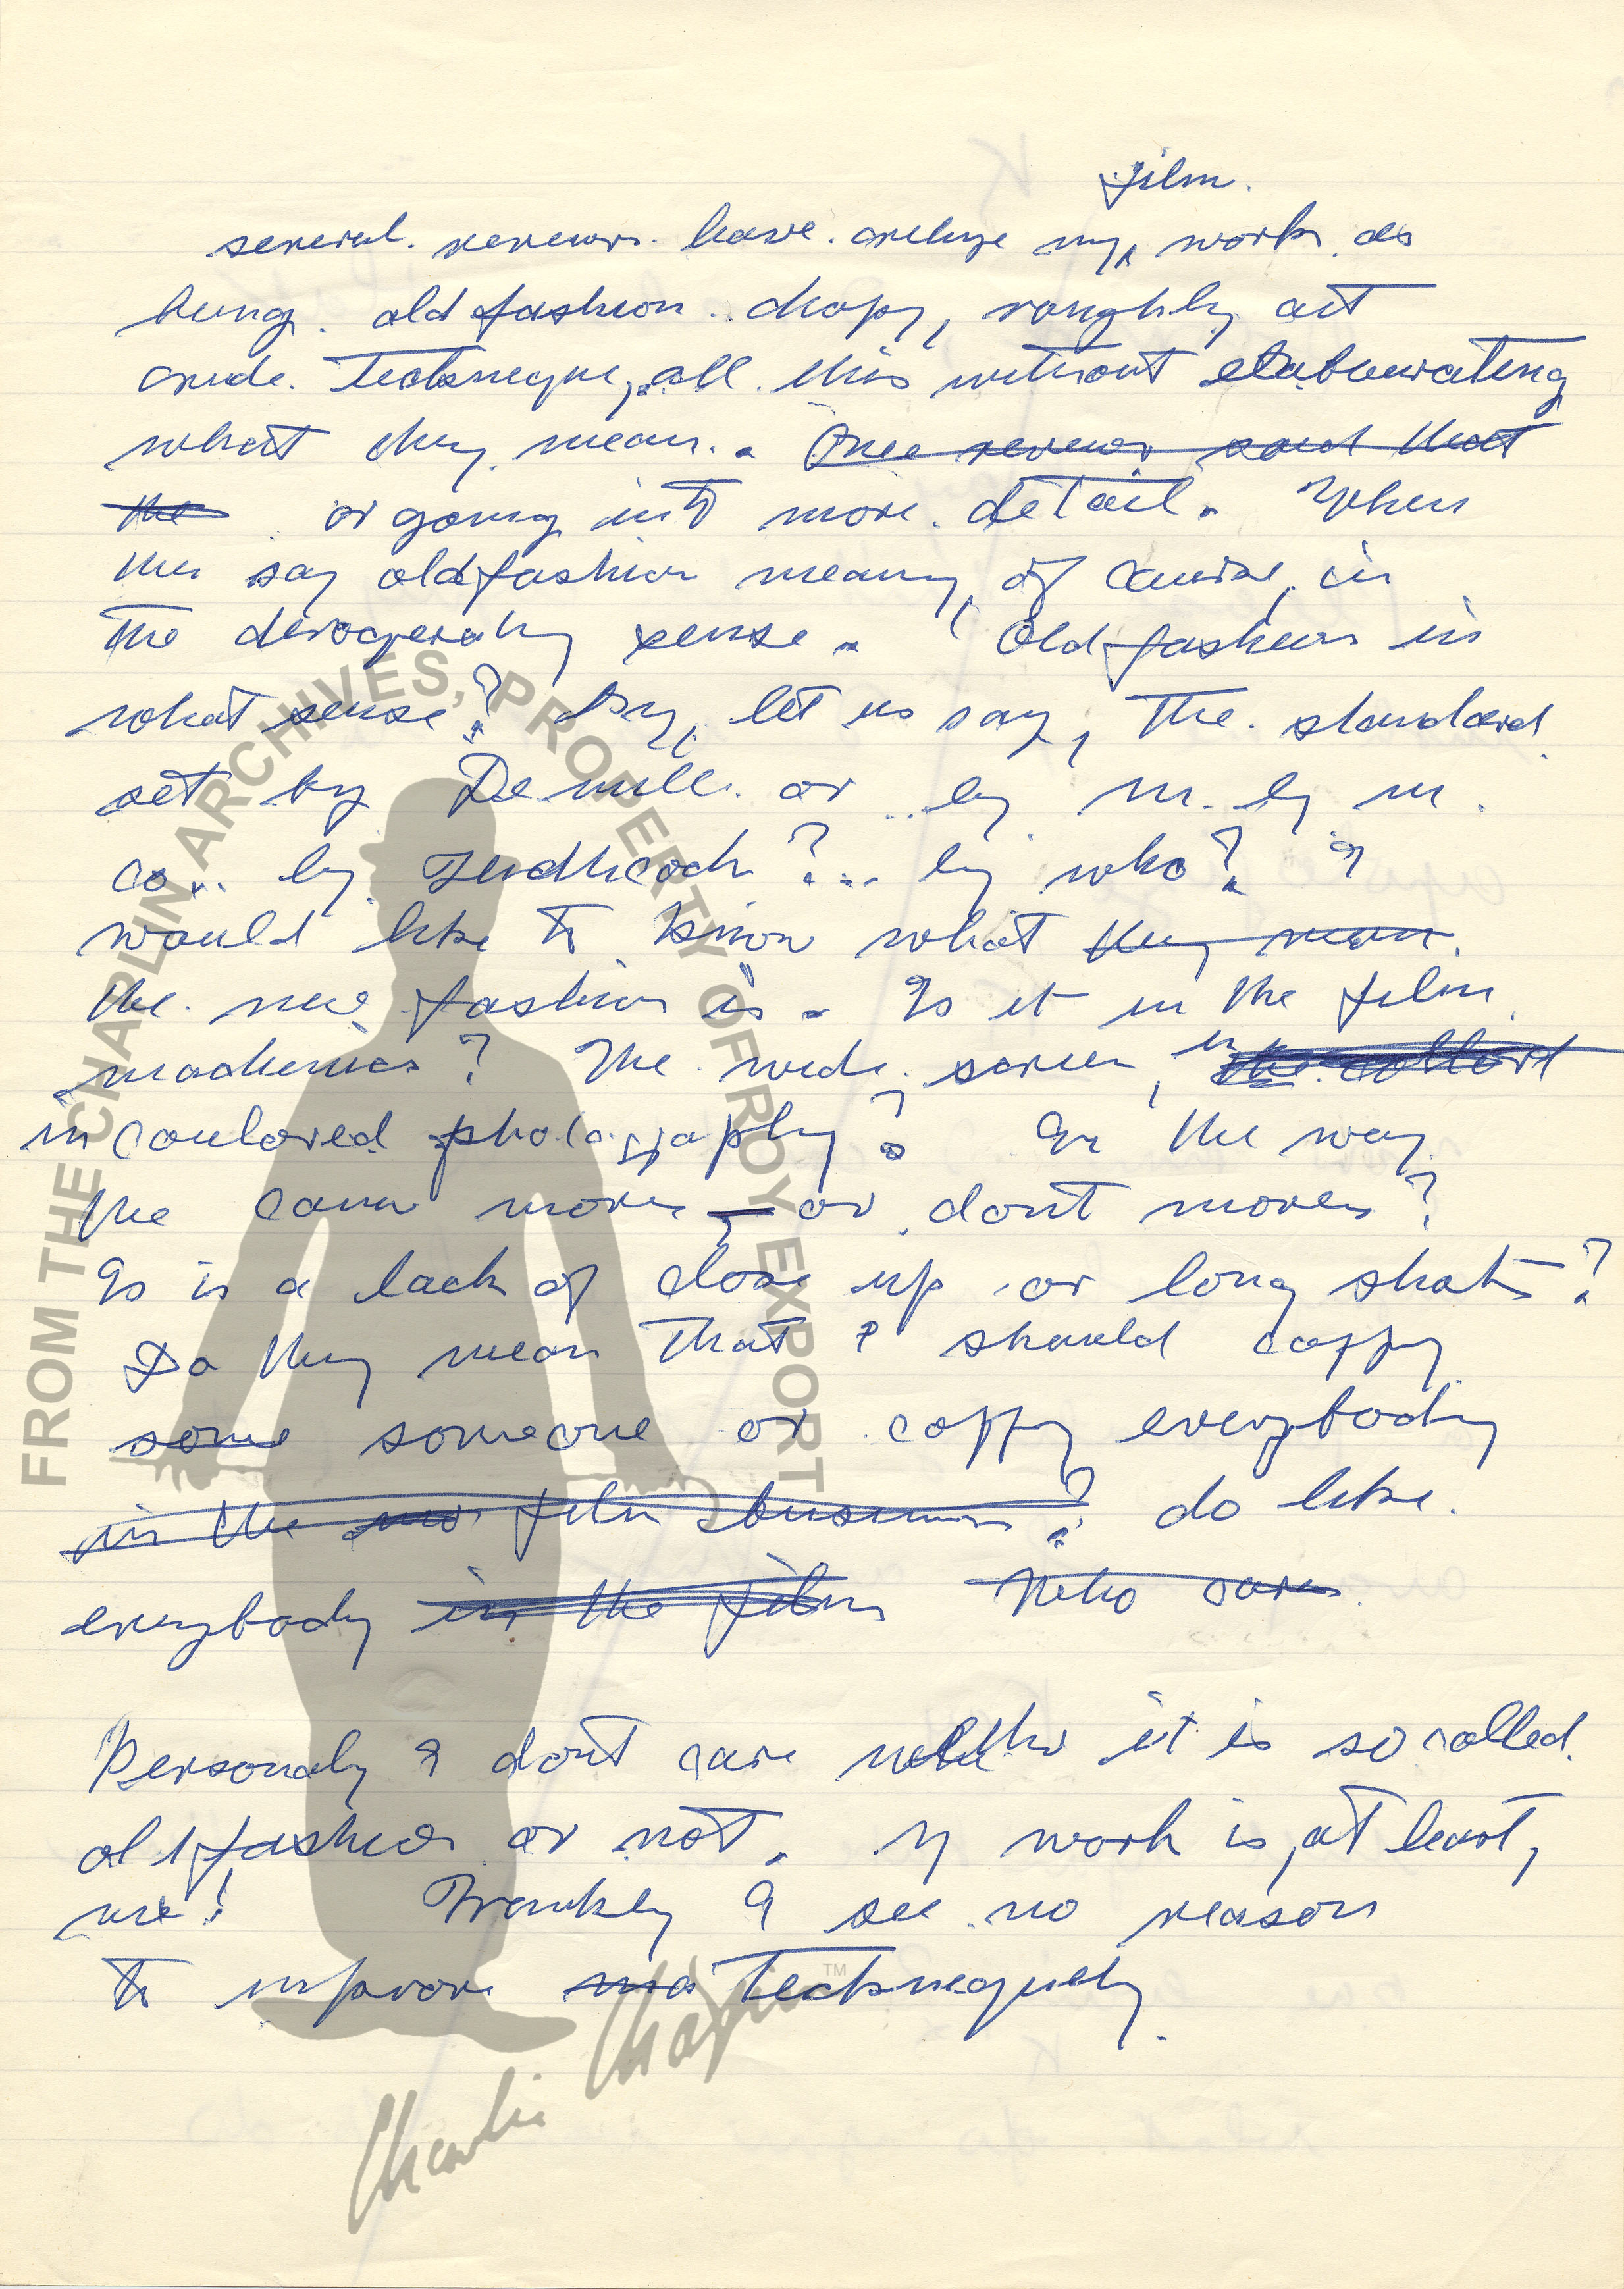 film.
several. reviews. have. my, work. as
being. old fashion.. chopy, roughly cut
crude. tecknique, all. this without elaborating
what they. mean.. One review said that
the or going into more. detail. When
they say old fashion meaning, of course, in
the derogeratry sense. Old fashion in
what sense? By, let us say, the. standard
set by De mille. or .. by m. g m.
co... by Hitchcock?... by who? I
would like to know what they mean.
the. new fashion is. Is it in the film
mackenics? The. wide. screen, in the collord
in coulored photography? In the way
the cama moves — or dont moves?
Is is a lack of close up or long shots?
Do they mean that I should coppy
some someone or coppy everybody
in the new film business? do like.
everybody in the film Who cares.
Personaly I dont care wether it is so called.
old fashion or not. My work is, at least,
me! Frankly I see no reason
to improve my tecknequely.
FROM THE CHAPLIN ARCHIVES, PROPERTY OF ROY EXPORT
Charlie Chaplin ™